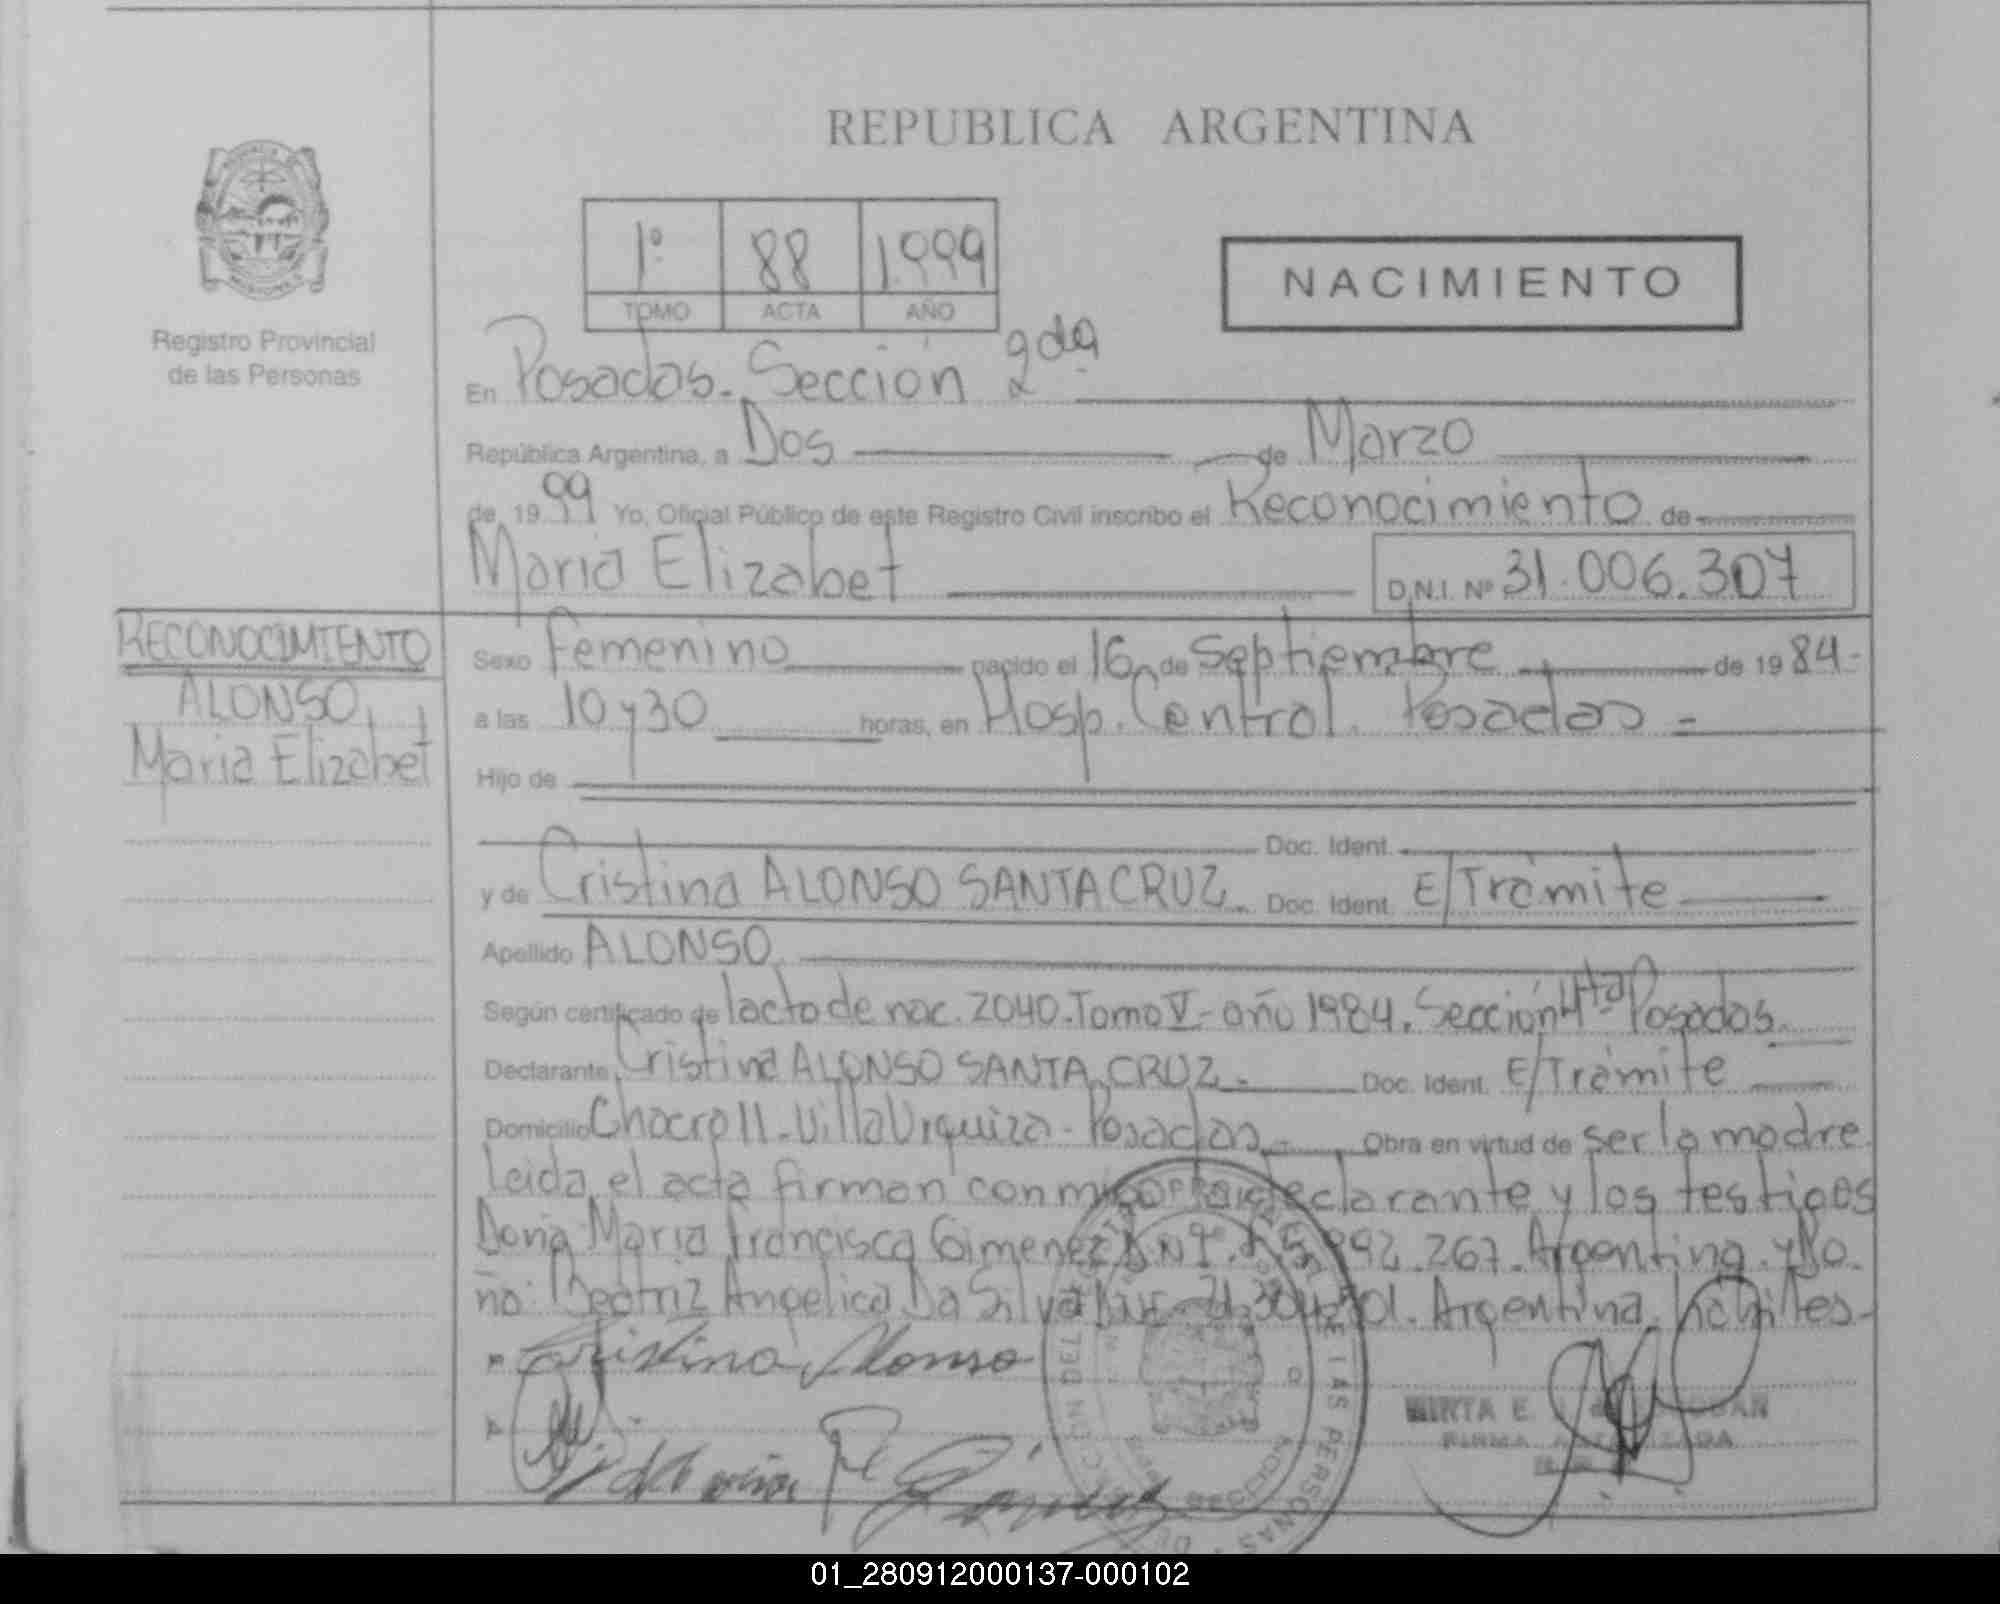 REPUBLICA ARGENTINA
1º 88 1.999
TOMO ACTA AÑO
NACIMIENTO
Registro Provincial
de las Personas
En Posadas. Sección 2da
República Argentina, a Dos de Marzo
de 1999 Yo, Oficial Público de este Registro Civil inscribo el Reconocimiento de
Maria Elizabet D.N.I. Nº 31.006.307
RECONOCIMIENTO
ALONSO
Maria Elizabet
Sexo Femenino nacido el 16 de Septiembre de 1984-
a las 10 y 30 horas, en Hosp. Central. Posadas -
Hijo de
Doc. Ident.
y de Cristina ALONSO SANTA CRUZ. Doc. Ident. E/Trámite
Apellido ALONSO
Según certificado de lacto de nac. 2040. Tomo V- año 1984. Sección 4ta Posadas.
Declarante Cristina ALONSO SANTA CRUZ. Doc. Ident. E/Trámite
Domicilio Chacra 11. Villa Urquiza - Posadas Obra en virtud de ser la madre
Leida el acta firman conmigo la declarante y los testigos
Doña Maria Francisca Gimenez 992.267. Argentina. y Do.
ña: Beatriz Angelica Da Silva Argentina. habiles-
Cristina Alonso
MIRTA E.
FIRMA AUTORIZADA
01_280912000137-000102